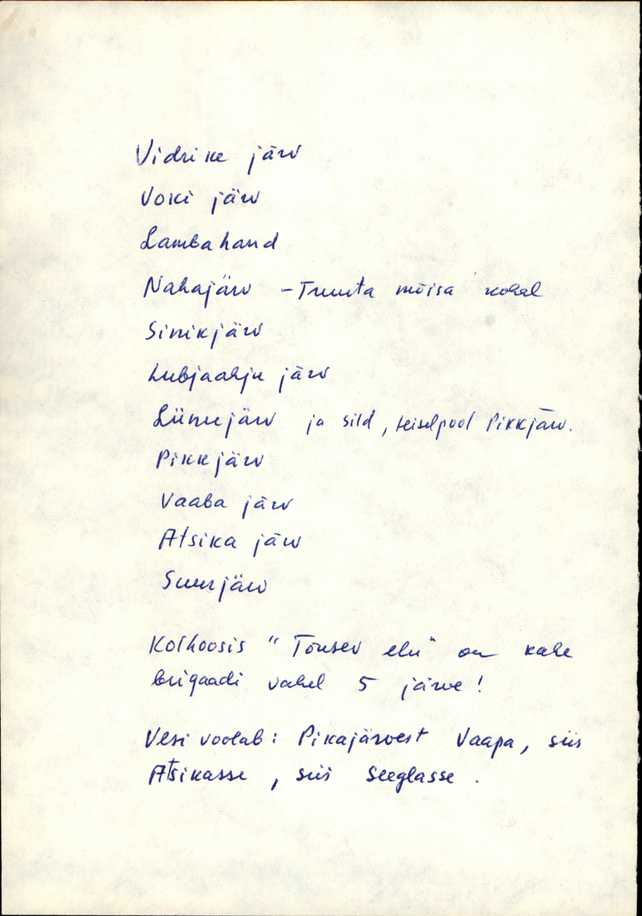 Vidrike järv
Voki järv
Lambahand
Nahajärv - Truuta mõisa kohal
Sinikjärv
Lubjaahju järv
Liinujärv ja sild, teiselpool Pikkjärv.
Pikkjärv
Vaaba järv
Atsika järv
Suurjärv
Kolhoosis "Tõusev elu" on kahe
brigaadi vahel 5 järve!
Vesi voolab: Pikajärvest Vaapa, siis
Atsikasse, siis Seeglasse.